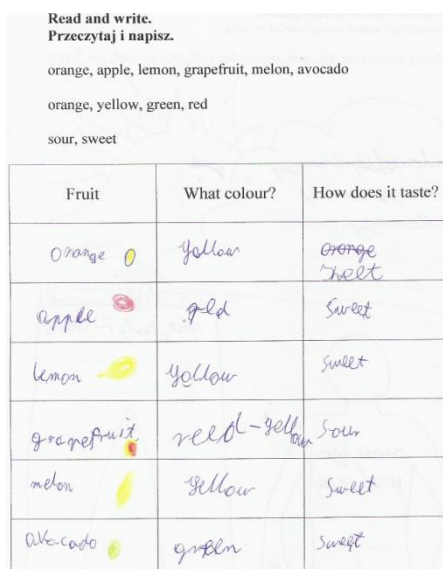 Read and write.
Przeczytaj i napisz.
orange, apple, lemon, grapefruit, melon, avocado
orange, yellow, green, red
sour, sweet
Fruit What colour? How does it taste?
orange yollow orange
sheet
apple sweet
lemon yollow sweet
grapefruit reed-yellow sour
melon yellow sweet
avocado green sweet